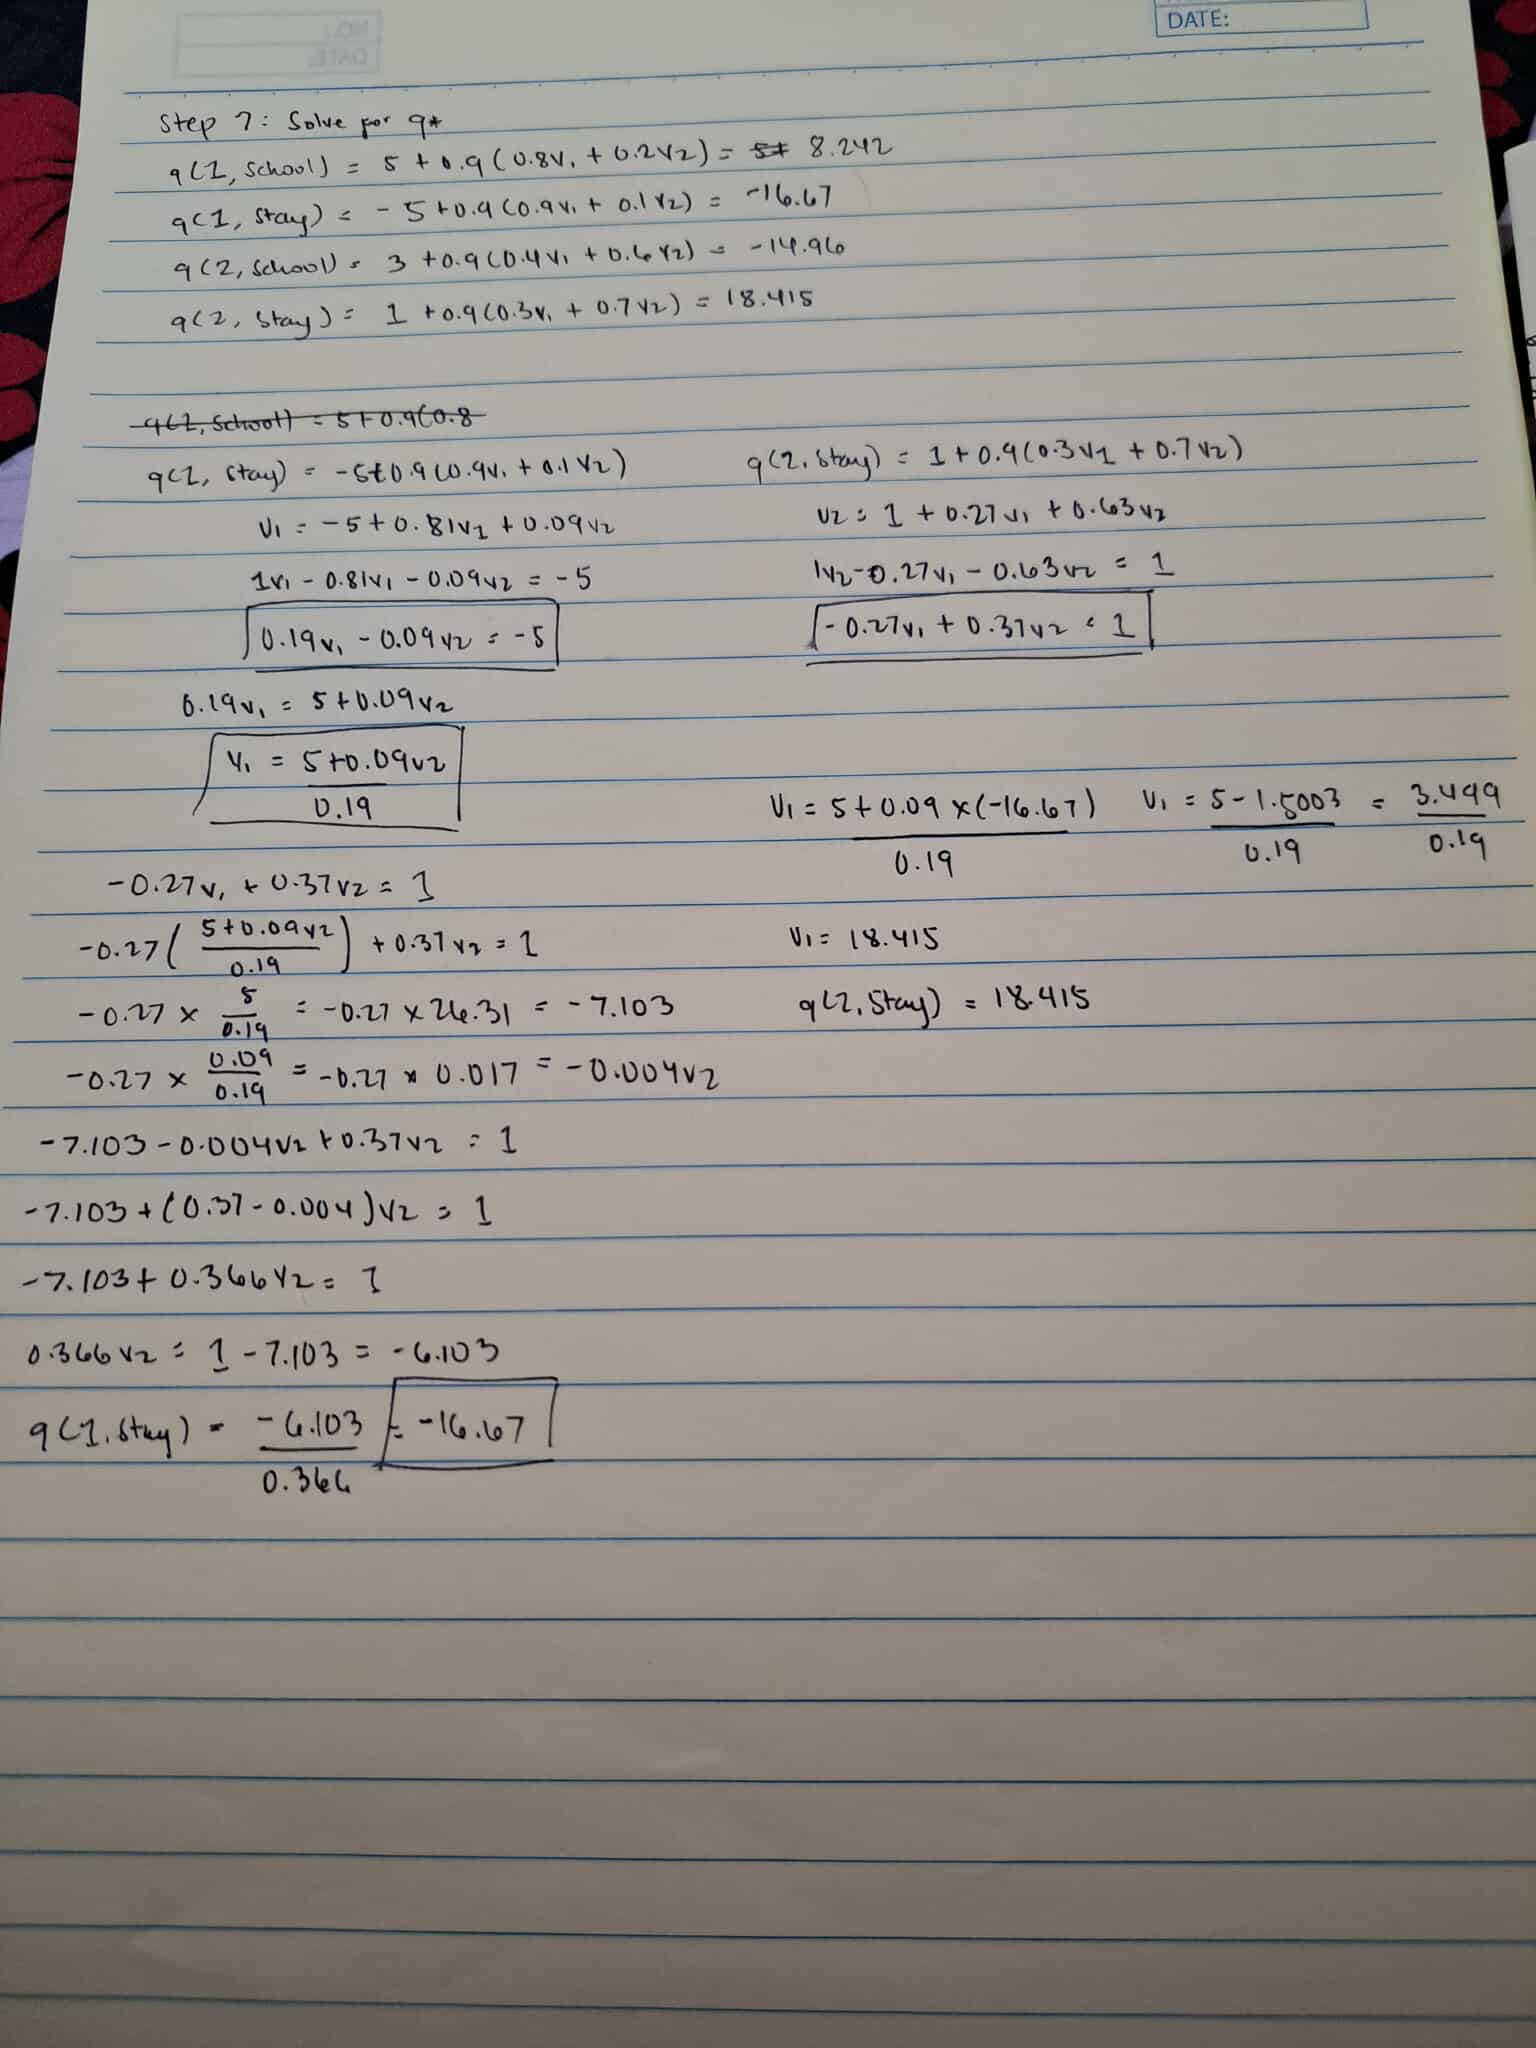 DATE:
Step 7: Solve for q*
q(1, School) = 5 + 0.9 (0.8v1 + 0.2v2) = 8.242
q(1, Stay) = -5 + 0.9 (0.9v1 + 0.1v2) = -16.67
q(2, School) = 3 + 0.9 (0.4v1 + 0.6v2) = -14.96
q(2, Stay) = 1 + 0.9 (0.3v1 + 0.7v2) = 18.415
q(2, School) = 5 + 0.9(0.8
q(1, Stay) = -5+0.9 (0.9v1 + 0.1v2)
v1 = -5 + 0.81v1 + 0.09v2
1v1 - 0.81v1 - 0.09v2 = -5
0.19v1 - 0.09v2 = -5
0.19v1 = 5 + 0.09v2
v1 = 5+0.09v2
0.19
-0.27v1 + 0.37v2 = 1
-0.27 ( 5+0.09v2 / 0.19 ) + 0.37v2 = 1
-0.27 x 5/0.19 = -0.27 x 26.31 = -7.103
-0.27 x 0.09/0.19 = -0.27 x 0.017 = -0.004v2
-7.103 - 0.004v2 + 0.37v2 = 1
-7.103 + (0.37 - 0.004)v2 = 1
-7.103 + 0.366v2 = 1
0.366v2 = 1 - 7.103 = -6.103
q(1, Stay) = -6.103/0.366 = -16.67
q(2, Stay) = 1 + 0.9(0.3v1 + 0.7v2)
v2 = 1 + 0.27v1 + 0.63v2
1v2 - 0.27v1 - 0.63v2 = 1
-0.27v1 + 0.37v2 = 1
v1 = 5 + 0.09 x (-16.67) / 0.19 v1 = 5 - 1.5003 / 0.19 = 3.499 / 0.19
v1 = 18.415
q(2, Stay) = 18.415